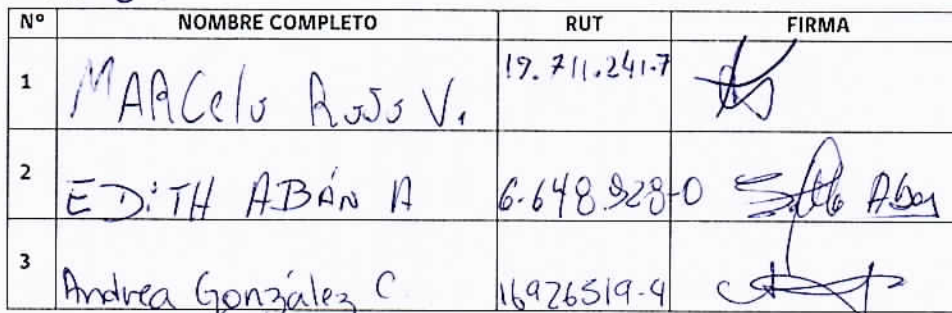 Nº NOMBRE COMPLETO RUT FIRMA
1 MARCelo Rojo V. 19.711.241-7
2 EDiTH ABÁN A 6.648.928-0
3 Andrea González C. 16926519-9